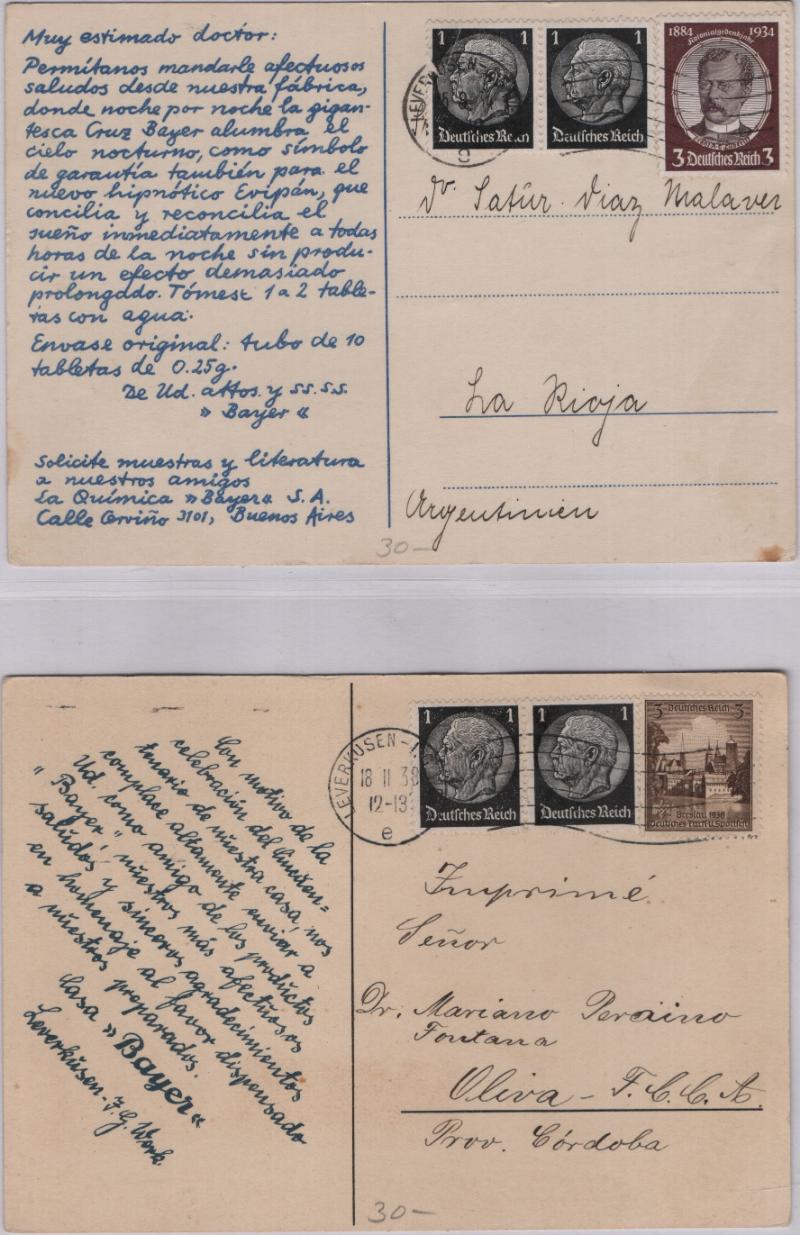 Muy estimado doctor:
Permítanos mandarle afectuosos
saludos desde nuestra fábrica,
donde noche por noche la gigan-
tesca Cruz Bayer alumbra el
cielo nocturno, como símbolo
de garantía también para el
nuevo hipnótico Evipán, que
concilia y reconcilia el
sueño inmediatamente a todas
horas de la noche sin produ-
cir un efecto demasiado
prolongado. Tómese 1 a 2 table-
tas con agua.
Envase original: tubo de 10
tabletas de 0.25g.
De Ud. attos. y ss.s.s.
» Bayer «
Solicite muestras y literatura
a nuestros amigos
La Química »Bayer« S.A.
Calle Cerviño 3101, Buenos Aires
1 1
Deutsches Reich
1 1
Deutsches Reich
1884 1934
Kolonialgedenkjahr
3 Deutsches Reich 3
LEVERKUSEN-
g
Dr. Satúr. Diaz Malaver
La Rioja
Argentinien
30—
Con motivo de la
celebración del Cincuen-
tenario de nuestra casa, nos
complace altamente enviar a
Ud. como amigo de los productos
"Bayer", nuestros más afectuosos
saludos y sinceros agradecimientos
en homenaje al favor dispensado
a nuestros preparados.
Casa »Bayer«
Leverkusen-I.G. Werk.
LEVERKUSEN-I.
18 11 38
12-13
e
1 1
Deutsches Reich
1 1
Deutsches Reich
3 Deutsches Reich 3
Breslau 1938
Deutsches Turn u. Sportfest
Imprimé
Señor
Dr. Mariano Peraino
Fontana
Oliva - F.C.C.A.
Prov. Córdoba
30—